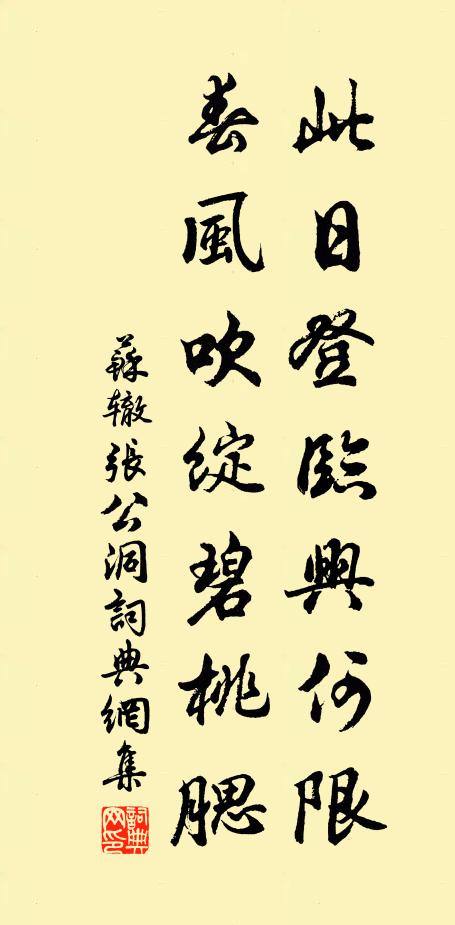 此日登臨興何限
春風吹綻碧桃腮
蘇辙張公洞詞典網集
詞典網印